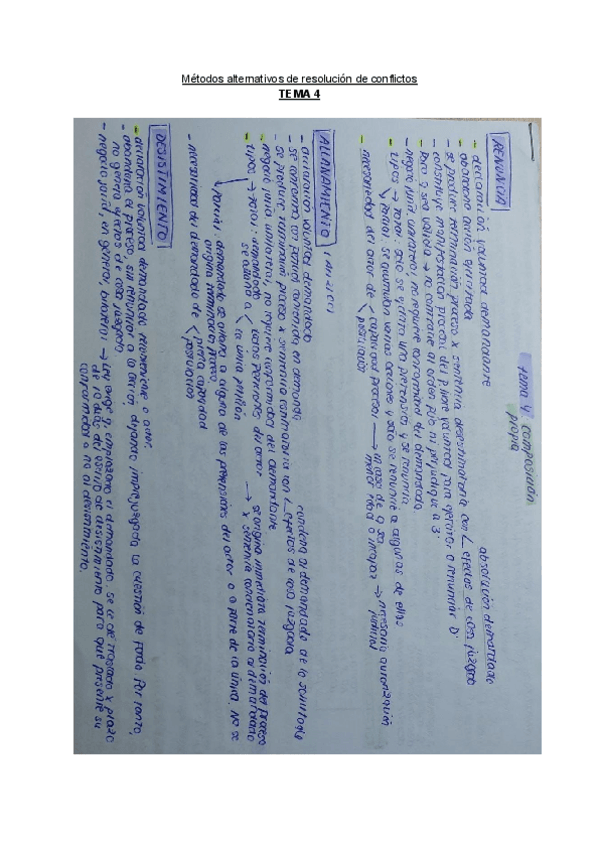 Métodos alternativos de resolución de conflictos
TEMA 4
tema 4 composición
propia
RENUNCIA
- declaración voluntad demandante
abandono acción ejercitada
- se produce terminación proceso x sentencia desestimatoria con absolución demandado
efectos de cosa juzgada
- consentir manifestación procesal del poder voluntad para
para q sea válida → no contraríe al orden pco ni perjudique a 3º
- negocio jurid. unilateral, no requiere conformidad del demandado
- tipos → total: solo se ejercita una pretensión y se renuncia
parcial: se acumulan varias acciones y solo se renuncia a algunas de ellas
- necesidad del actor de capacidad procesal → en caso de q sea
menor edad o incapaz → necesaria autorización
judicial
postulación
ALLANAMIENTO (art 21 LEC)
- declaración voluntad demandado
- se conforma con petición contenida en demanda
- se produce terminación proceso x sentencia condenatoria con condena al demandado de lo solicitado
efectos de cosa juzgada
- negocio jurid. unilateral, no requiere conformidad del demandante
- tipos → total: demandado
se allana a todas peticiones del actor
la única pedida
→ se origina inmediata terminación del proceso
x sentencia condenatoria al demandado
parcial: demandado se allana a alguna de las peticiones del actor o a parte de la única. No se
origina terminación proceso.
- necesidad del demandado de capacidad
postulación
DESISTIMIENTO
- declaración voluntad demandante
- abandona el proceso, sin renunciar a la acción, dejando imprejuzgada la cuestión de fondo. Por tanto,
no genera efectos de cosa juzgada
- negocio jurid, en general, bilateral → Ley exige q, emplazado el demandado, se le dé traslado x plazo
de 10 días del escrito de desistimiento para que preste su
conformidad o no al desistimiento.